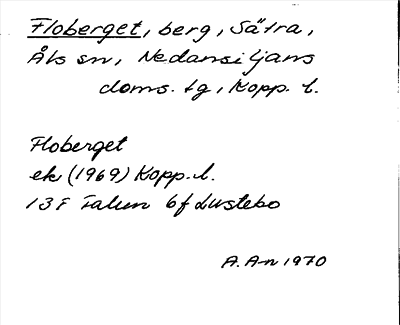 Floberget, berg, Sätra,
Åls sn, Nedansiljans
doms. tg, Kopp. l.
Floberget
ek (1969) Kopp. l.
13F Falun 6f Lustebo
A. A-n 1970